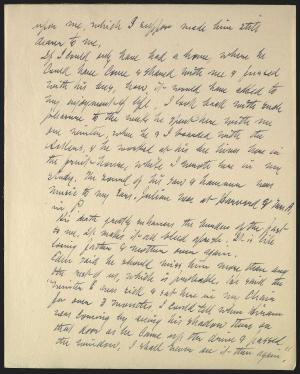 upon me, which I suppose made him still
dearer to me.
If I could only have had a home, where he
could have come & shared with me & puttered
with his any, how, it would have added to
my enjoyment of life. I look back with much
pleasure to the weeks he spent here with me
one winter, when he & I boarded with the
& he worked at his bee hives here in
the fruit-house, while I wrote here in my
study. The sound of his saw & hammer was
music to my ears. Julian was at Harvard & Mrs B.
in P.
His death greatly enhances the burden of the past
to me. It makes it all bleed afresh. It is like
losing father & mother over again.
Eden said he should miss him more than any
of the rest of us, which is probable. "As said the
winter I was sick & sat here in my chair
for over 3 months, I could tell when Hiram
was coming by seeing his shadow there on
that door as he came up the drive & passed
the window. I shall never see it there again."